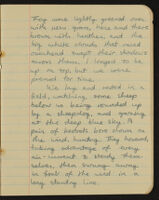 They were lightly greened over
with new grass, here and there
brown with heather, and the
big white clouds that sailed
overhead swept their shadows
across them. I longed to be
up on top, but we were
pressed for time.
We lay and rested in a
field, watching some sheep
below us being rounded up
by a sheepdog, and gazing
at the deep blue sky. A
pair of kestrels bore down on
the wind, hunting. They hovered,
taking advantage of every
air-current to steady them-
selves, then turning away
in front of the wind in a
long slanting line.